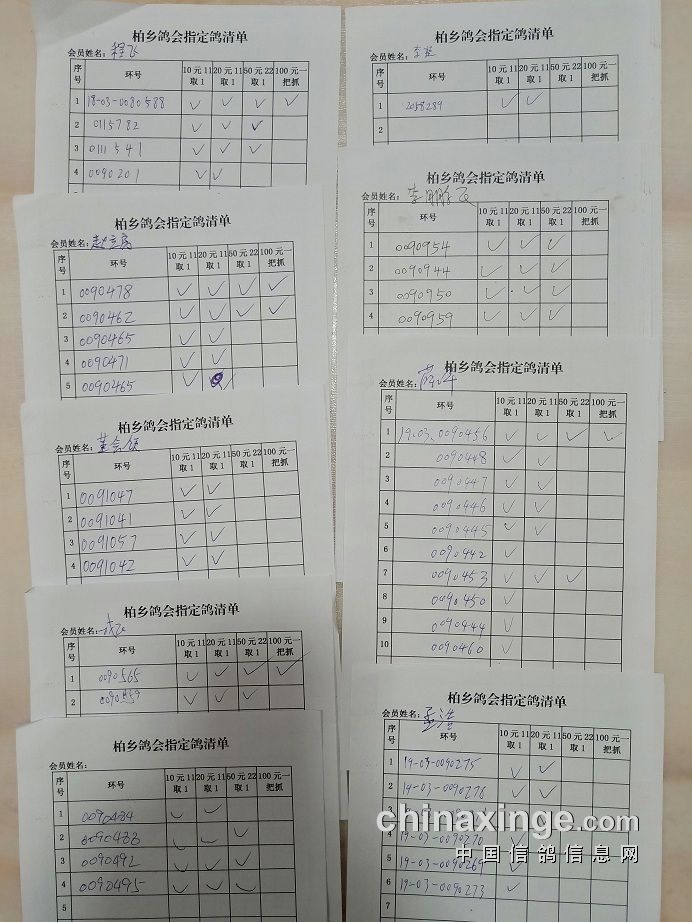 柏乡鸽会指定鸽清单
会员姓名：程飞
序号 环号 10元11取1 20元11取1 50元22取1 100元一把抓
1 18-03-0080588 ✓ ✓ ✓ ✓
2 0115782 ✓ ✓ ✓
3 0111541 ✓ ✓ ✓
4 0090201 ✓ ✓
柏乡鸽会指定鸽清单
会员姓名：
序号 环号 10元11取1 20元11取1 50元22取1 100元一把抓
1 0090478 ✓ ✓ ✓ ✓
2 0090462 ✓ ✓ ✓ ✓
3 0090465 ✓ ✓
4 0090471 ✓ ✓
5 0090465 ✓
柏乡鸽会指定鸽清单
会员姓名：
序号 环号 10元11取1 20元11取1 50元22取1 100元一把抓
1 0091047 ✓ ✓
2 0091041 ✓ ✓
3 0091057 ✓ ✓
4 0091042 ✓ ✓
柏乡鸽会指定鸽清单
会员姓名：
序号 环号 10元11取1 20元11取1 50元22取1 100元一把抓
1 0090565 ✓ ✓ ✓ ✓
2 ✓ ✓ ✓
柏乡鸽会指定鸽清单
会员姓名：
序号 环号 10元11取1 20元11取1 50元22取1 100元一把抓
1 0090484 ✓ ✓
2 0090488 ✓ ✓ ✓
3 0090492 ✓ ✓ ✓
4 0090495 ✓ ✓ ✓
柏乡鸽会指定鸽清单
会员姓名：
序号 环号 10元11取1 20元11取1 50元22取1 100元一把抓
1 2058289 ✓ ✓
2
柏乡鸽会指定鸽清单
会员姓名：李鹏飞
序号 环号 10元11取1 20元11取1 50元22取1 100元一把抓
1 0090954 ✓ ✓ ✓
2 0090944 ✓ ✓ ✓
3 0090950 ✓ ✓ ✓
4 0090959 ✓ ✓ ✓
柏乡鸽会指定鸽清单
会员姓名：
序号 环号 10元11取1 20元11取1 50元22取1 100元一把抓
1 19.03.0090456 ✓ ✓ ✓ ✓
2 0090448 ✓ ✓
3 0090447 ✓ ✓
4 0090446 ✓ ✓
5 0090445 ✓ ✓
6 0090442 ✓
7 0090453 ✓ ✓ ✓
8 0090450 ✓
9 0090444 ✓
10 0090460 ✓
柏乡鸽会指定鸽清单
会员姓名：孟浩
序号 环号 10元11取1 20元11取1 50元22取1 100元一把抓
1 19-03-0090275 ✓ ✓
2 19-03-0090276 ✓ ✓
3
19-03-0090270 ✓
5 19-03-0090269 ✓
6 19-03-0090273 ✓
7
chinaxinge.com
中国信鸽信息网